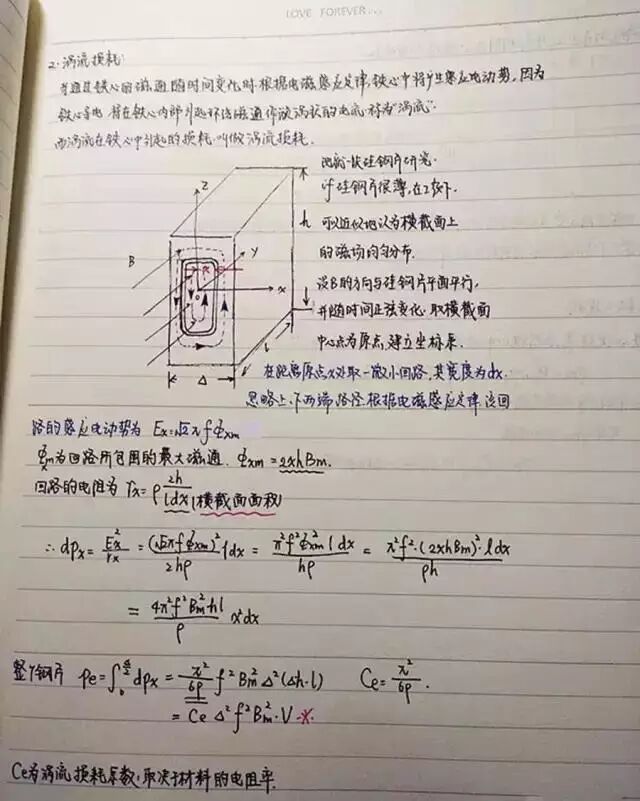 LOVE FOREVER...
2. 涡流损耗:
当通过铁心的磁通随时间变化时,根据电磁感应定律,铁心中将产生感应电动势,因为
铁心导电,将在铁心内部引起环绕磁通作漩涡状的电流,称为"涡流".
而涡流在铁心中引起的损耗,叫做涡流损耗.
一块硅钢片研究.
if 硅钢片很薄,在Z
可以近似地认为横截面上
的磁场均匀分布.
设B的方向与硅钢片平面平行,
并随时间正弦变化.取横截面
中心点为原点,建立坐标系.
Z
h
B
Y
x
x
o
l
Δ
在距离原点x处取一微小回路,其宽度为dx.
忽略上、下两端路径.根据电磁感应定律,该回
路的感应电动势为 Ex=√2πfΦxm
Φxm为回路所包围的最大磁通. Φxm=2xhBm.
回路的电阻为 rx=ρ 2h/(ldx) (横截面面积)
∴ dpx = Ex²/rx = (√2πfΦxm)²/(2hρ) ldx = π²f²Φxm² l dx/(hρ) = π²f²·(2xhBm)²·ldx/(ρh)
= 4π²f²Bm²hl/ρ x²dx
整个钢片 pe=∫₀^(Δ/2) dpx = π²/(6ρ) f²Bm²Δ²(Δh·l) Ce=π²/(6ρ).
= Ce Δ²f²Bm²·V
Ce为涡流损耗系数,取决于材料的电阻率.